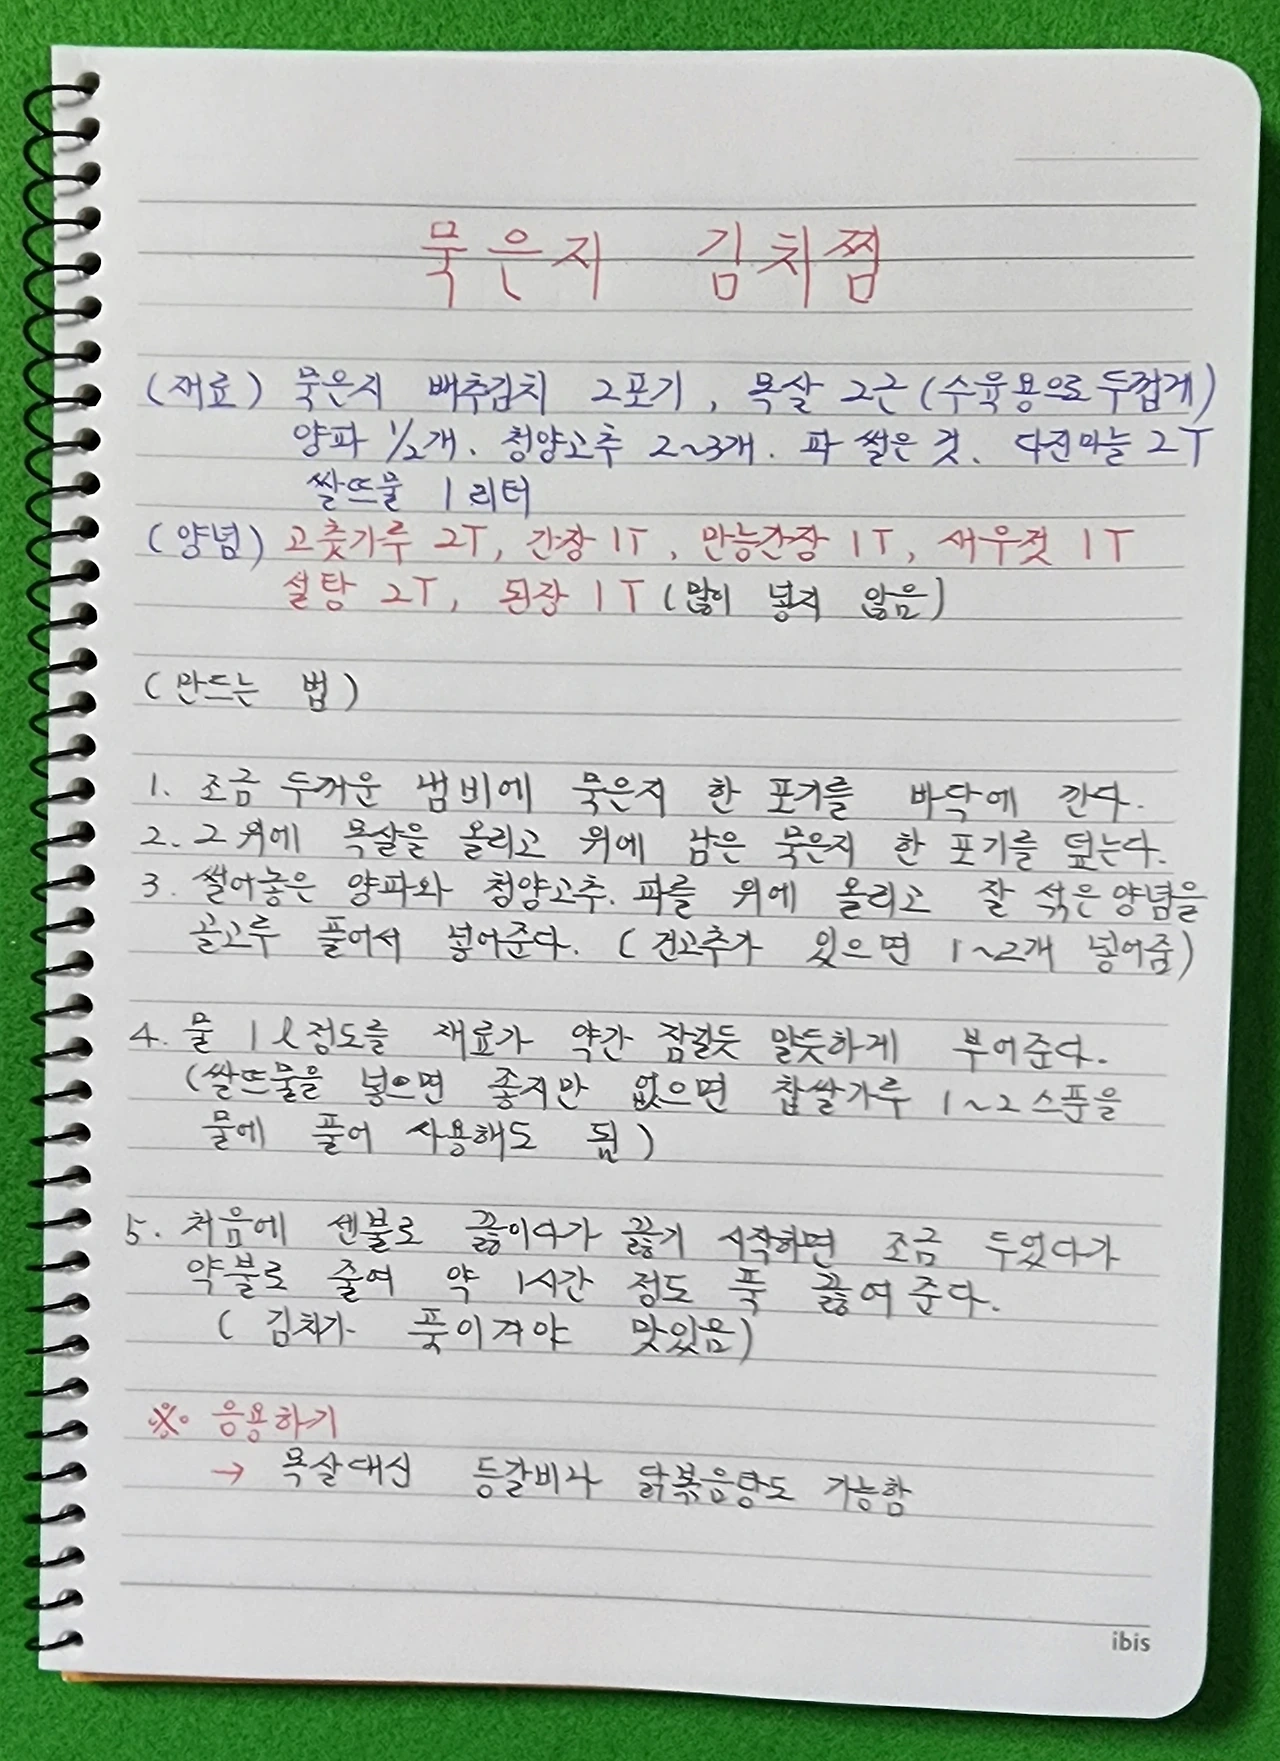 묵은지 김치찜
(재료) 묵은지 배추김치 2포기, 목살 2근 (수육용으로 두껍게)
양파 1/2개. 청양고추 2~3개. 파 썰은 것. 다진마늘 2T
쌀뜨물 1리터
(양념) 고춧가루 2T, 간장 1T, 만능간장 1T, 새우젓 1T
설탕 2T, 된장 1T (많이 넣지 않음)
(만드는 법)
1. 조금 두꺼운 냄비에 묵은지 한 포기를 바닥에 깐다.
2. 그 위에 목살을 올리고 위에 남은 묵은지 한 포기를 덮는다.
3. 썰어놓은 양파와 청양고추. 파를 위에 올리고 잘 섞은 양념을
골고루 풀어서 넣어준다. (건고추가 있으면 1~2개 넣어줌)
4. 물 1ℓ정도를 재료가 약간 잠길듯 말듯하게 부어준다.
(쌀뜨물을 넣으면 좋지만 없으면 찹쌀가루 1~2스푼을
물에 풀어 사용해도 됨)
5. 처음에 센불로 끓이다가 끓기 시작하면 조금 두었다가
약불로 줄여 약 1시간 정도 푹 끓여준다.
(김치가 푹이겨야 맛있음)
※ 응용하기
→ 목살대신 등갈비나 닭볶음탕도 가능함
ibis